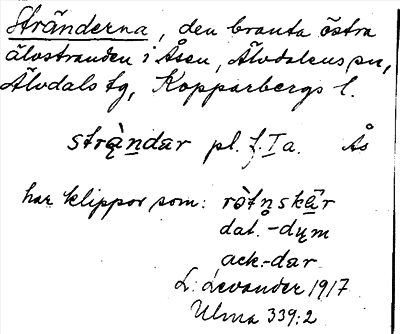 Stränderna, den branta östra
älvstranden i Åsen, Älvdalens sn,
Älvdals tg, Kopparbergs l.
strą̀ndär pl. f. Ia. Ås
har klippor som: rȯ̀tn̥skä̀r
dat. -dųm
ack.-där
L: Levander 1917
Ulma 339:2